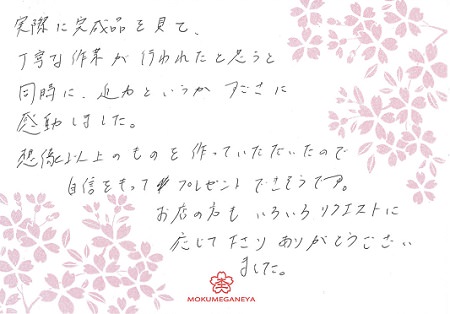 実際に完成品を見て、
丁寧な作業が行われたと思うと
同時に、迫力というか すごさに
感動しました。
想像以上のものを作っていただいたので
自信をもって プレゼント できそうです。
お店の方も いろいろ リクエストに
応じて下さり ありがとうござい
ました。
MOKUMEGANEYA